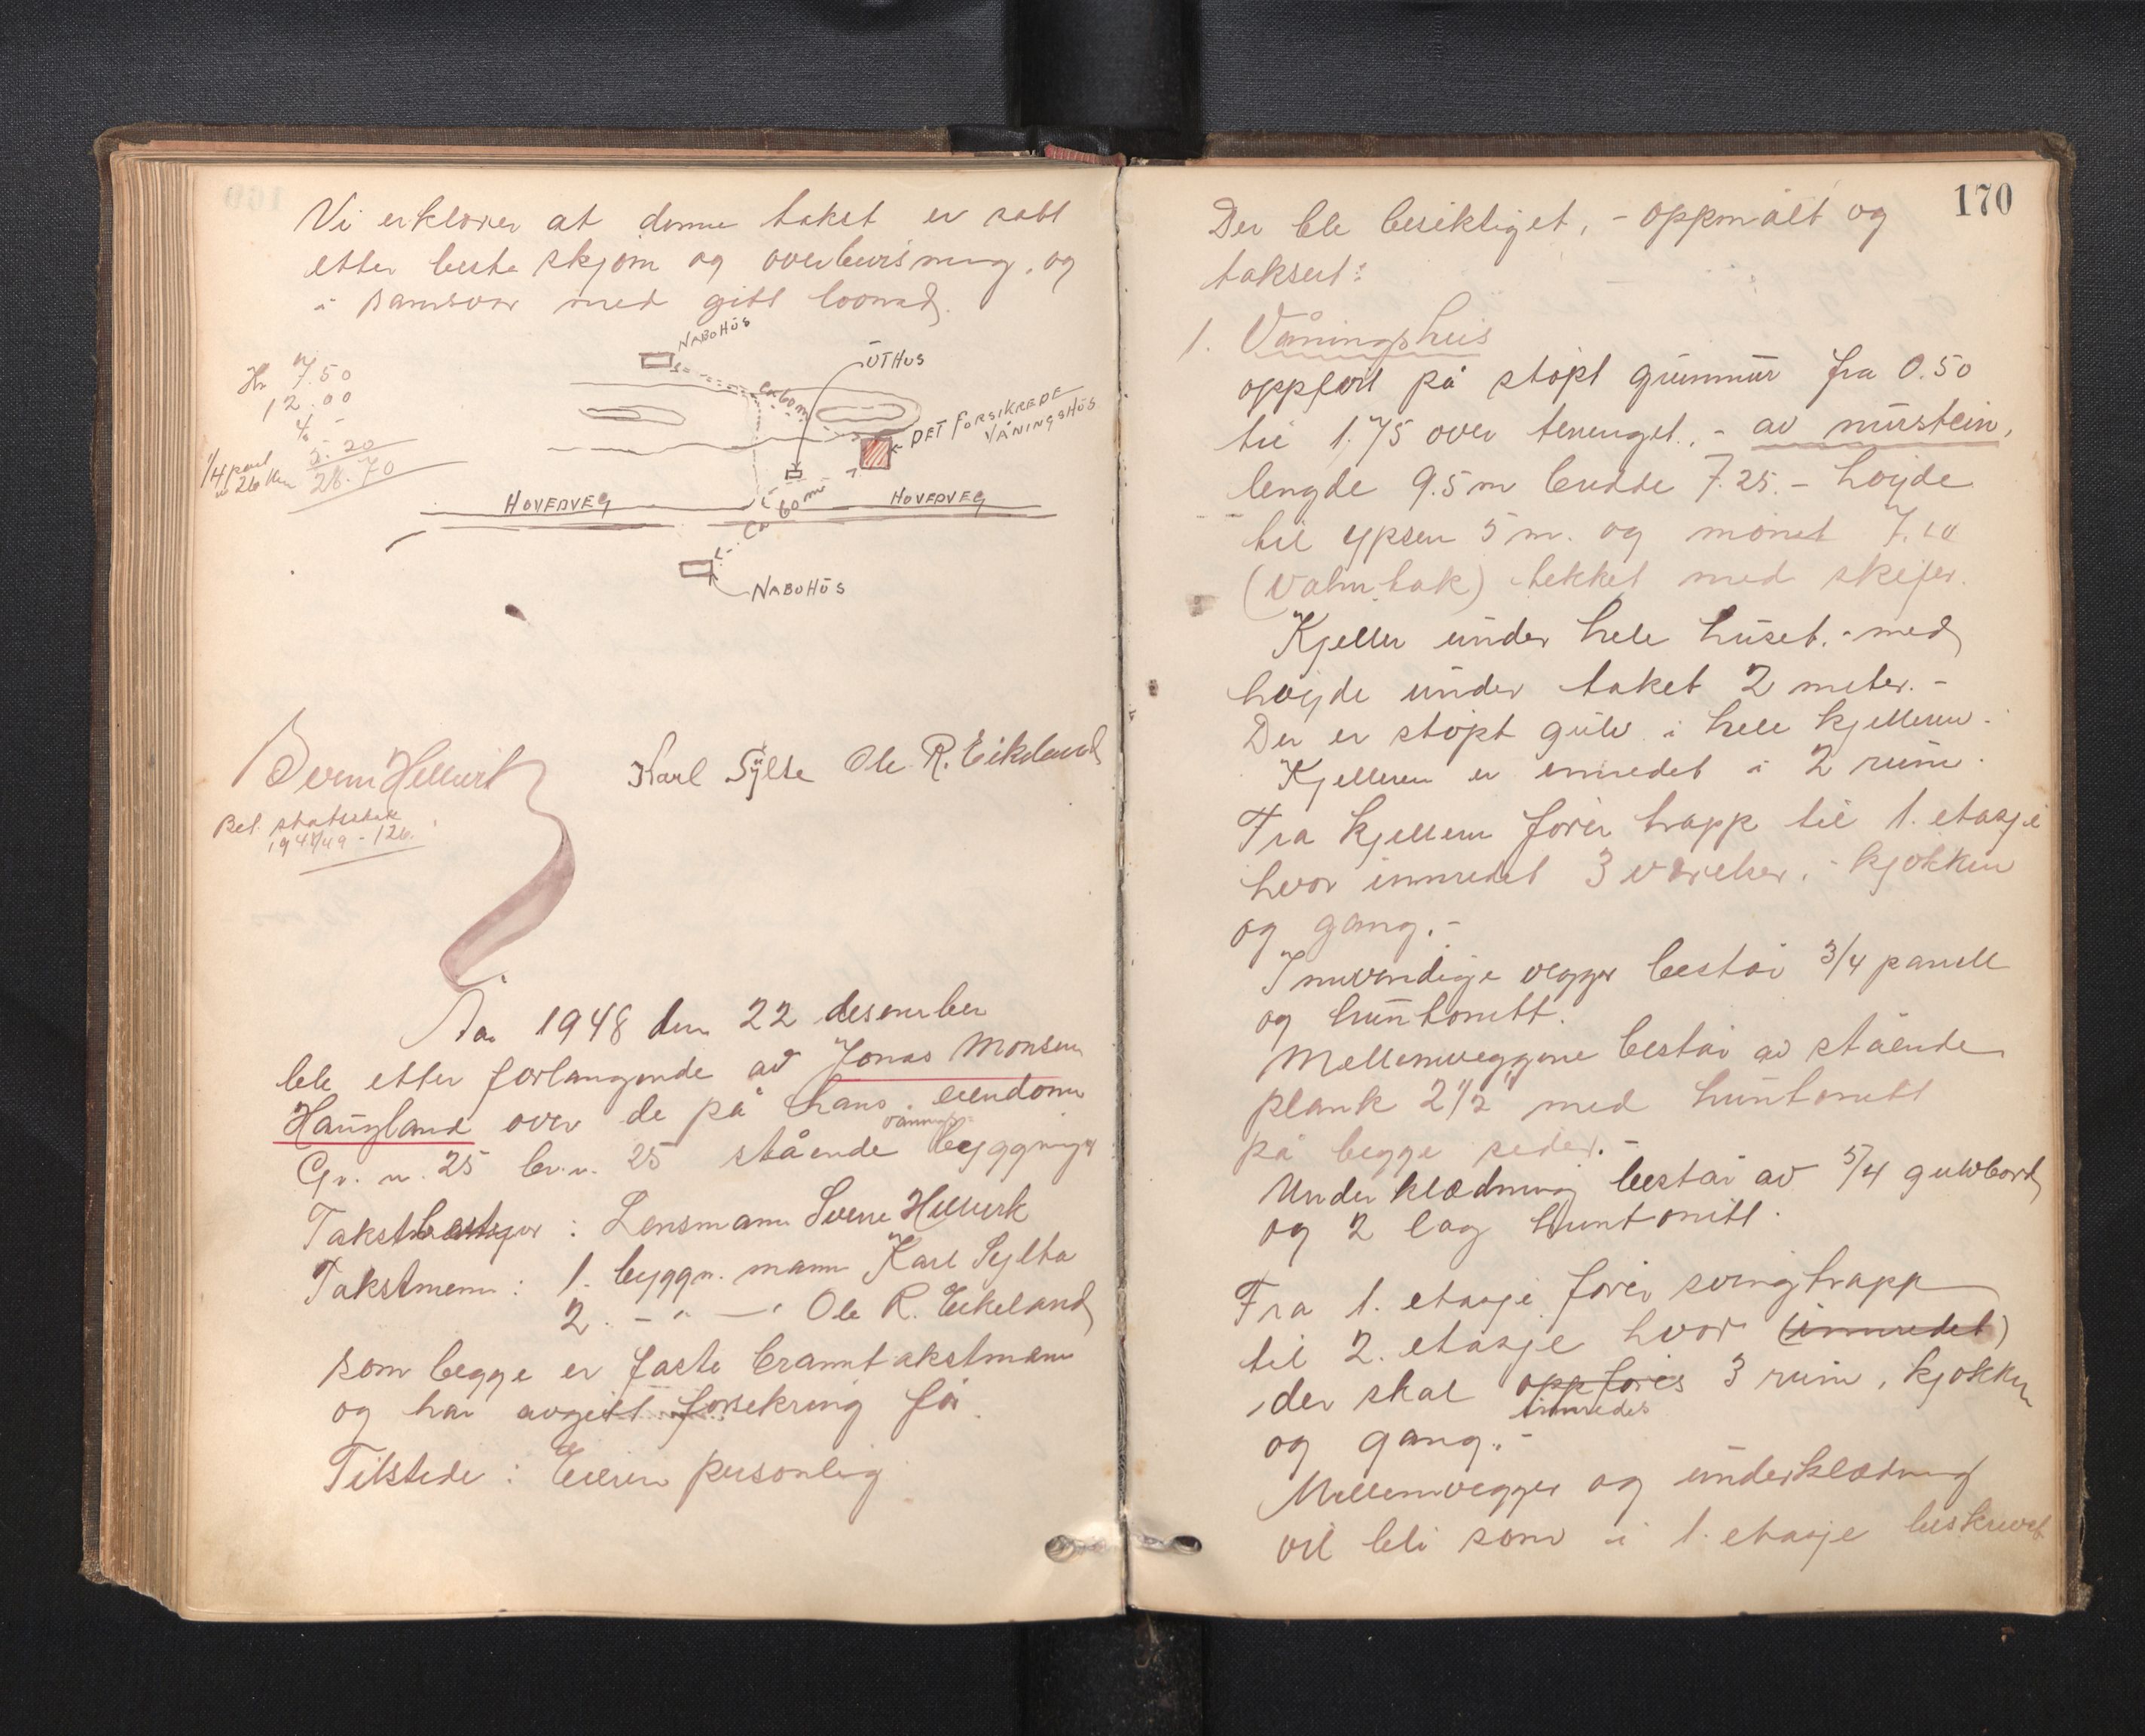 Vi erklærer at denne takst er satt
etter beste skjøn og overbevisning, og
i samsvar med gitt lovnad.
NABOHUS
UTHUS
ca 60 m
DET FORSIKREDE
VÅNINGSHUS
HOVEDVEG
HOVEDVEG
ca 60 m
NABOHUS
Kr 7.50
12.00
4 -
3.20
26.70
1/4 part
26 km
Karl Sylte Ole R. Eikeland
1948/49 - 126.
År 1948 den 22 desember
ble etter forlangende av Jonas Monsen
Haugland over de på hans eiendom
vånings-
Gr. n. 25 br. n. 25 stående bygninger
Takstbestyrer : Lensmann Sverre Hellerk
Takstmenn : 1. byggn. mann Karl Sylta
2. - " - Ole R. Eikeland
som begge er faste branntakstmenn
og har avgitt forsekring før.
Tilstede : Eieren personlig
170
Der ble besiktiget, - oppmålt og
taksert:
1. Våningshus
oppført på støpt grunmur fra 0.50
til 1.75 over terrenget, - av murstein,
lengde 9.5 m bredde 7.25. - højde
til ypsen 5 m. og mønet 7.10
(valm tak) tekket med skifer.
Kjeller under hele huset. - med
højde under taket 2 meter. -
Der er støpt gulv i hele kjelleren.
Kjelleren er innredet i 2 rum.
Fra kjelleren fører trapp til 1. etasje
hvor innredet 3 værelser, - kjøkken
og gang. -
Innvendige vegger består 3/4 panell
og huntonitt.
Mellemveggene består av stående
plank 2 1/2" med huntonitt
på begge sider. -
Underklædning består av 5/4 gulvbord
og 2 lag huntonitt.
Fra 1. etasje fører svingtrapp
til 2. etasje hvor (innredet)
der skal oppføres 3 rum, kjøkken
innredes
og gang. -
Mellemvegger og underklædning
vil bli som i 1. etasje beskrevet